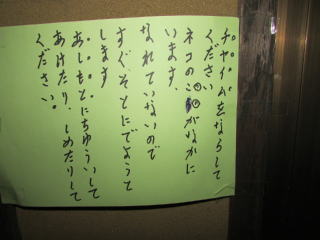 チャイムをならして
ください
ネコのこがなかに
います、
なれていないので
すぐそとにでようと
します
あしもとにちゅういして
あけたり、しめたりして
ください。